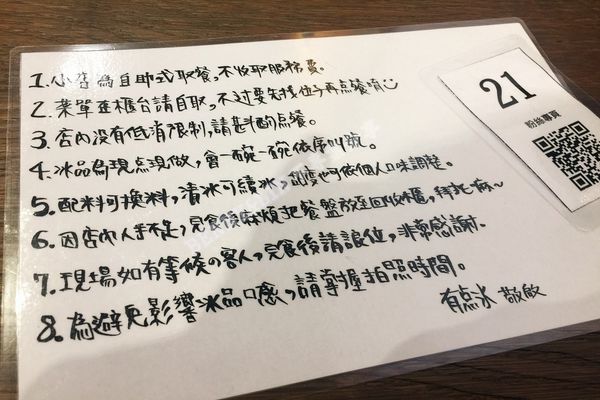 1. 小店為自助式取餐，不收取服務費。
2. 菜單在櫃台請自取，不過要先找位子再点餐唷
3. 店內没有低消限制，請斟酌点餐。
4. 冰品為現点現做，會一碗一碗依序叫號。
5. 配料可換料，清冰可續冰，甜度也可依個人口味調整。
6. 因店內人手不足，完食後麻煩把餐盤放至回收櫃，拜託麻~
7. 現場如有等候の客人，完食後請讓位，非常感謝.
8. 為避免影響冰品口感，請掌握拍照時間。
有点冰 敬啟
21
粉絲專頁